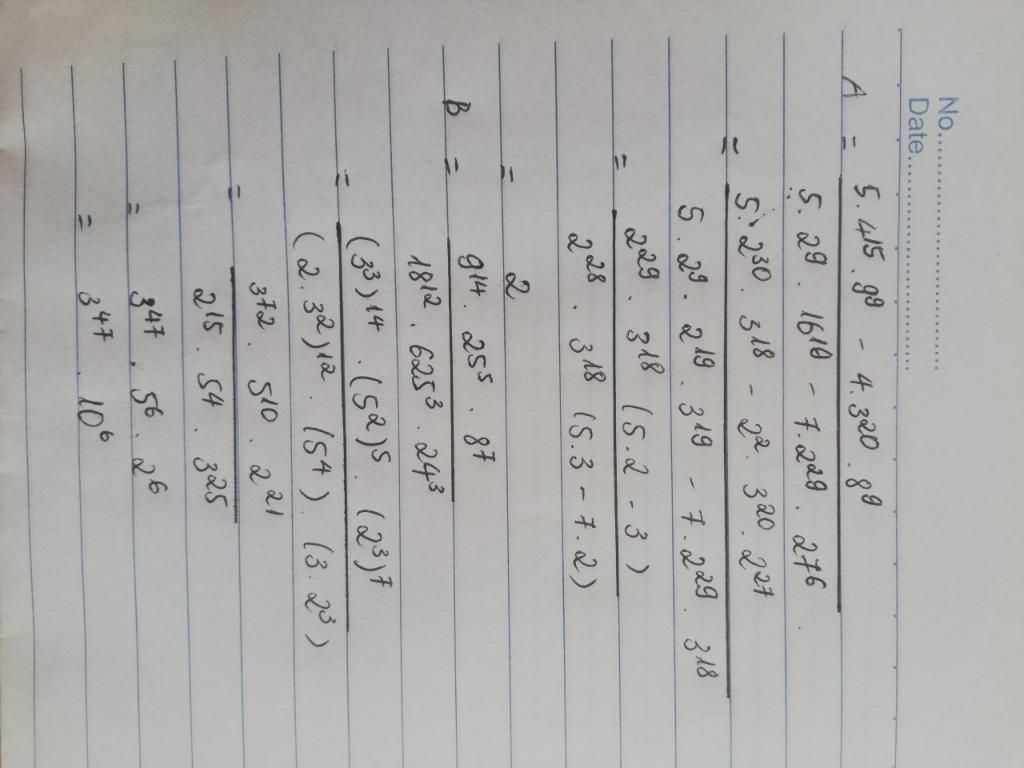 No.
Date
A = 5.4¹⁵.9⁹ - 4.3²⁰.8⁹
5.2⁹.16¹⁹ - 7.2²⁹.27⁶
= 5.2³⁰.3¹⁸ - 2².3²⁰.2²⁷
5.2⁹.2¹⁹.3¹⁹ - 7.2²⁹.3¹⁸
= 2²⁹.3¹⁸(5.2 - 3)
2²⁸.3¹⁸(5.3 - 7.2)
= 2
B = 9¹⁴.25⁵.8⁷
18¹².625³.24³
= (3³)¹⁴.(5²)5.(2³)⁷
(2.3²)¹².(5⁴).(3.2³)
= 3⁷².5¹⁰.2²¹
2¹⁵.5⁴.3²⁵
= 3⁴⁷.5⁶.2⁶
= 3⁴⁷.10⁶